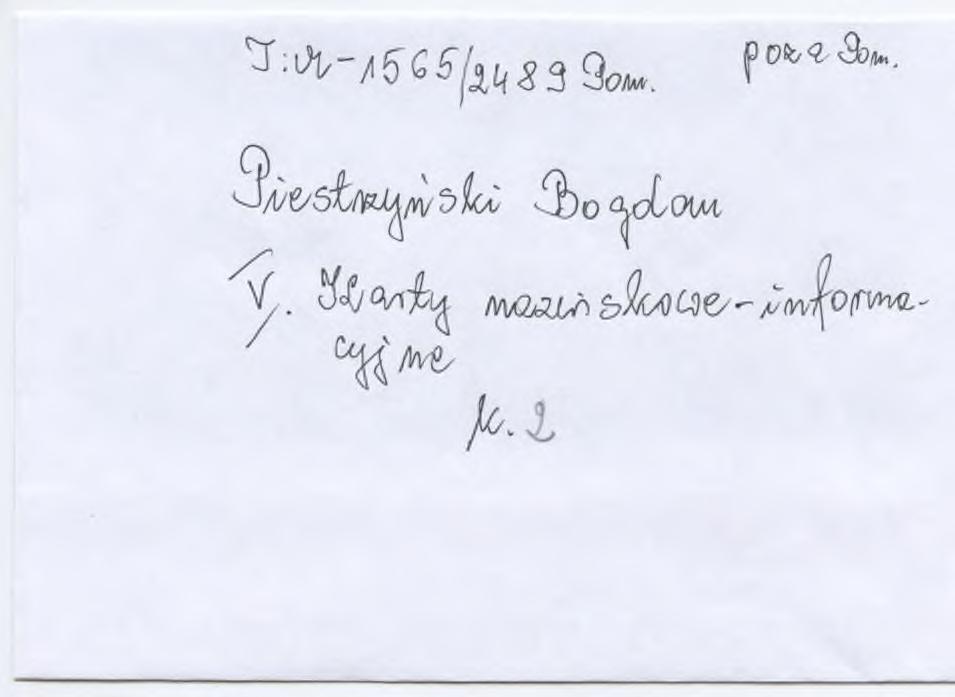 T: M-1565/2489 Pom. poza Pom.
Piestrzyński Bogdan
V. Karty nazwiskowe-informa-
cyjne
k. 2